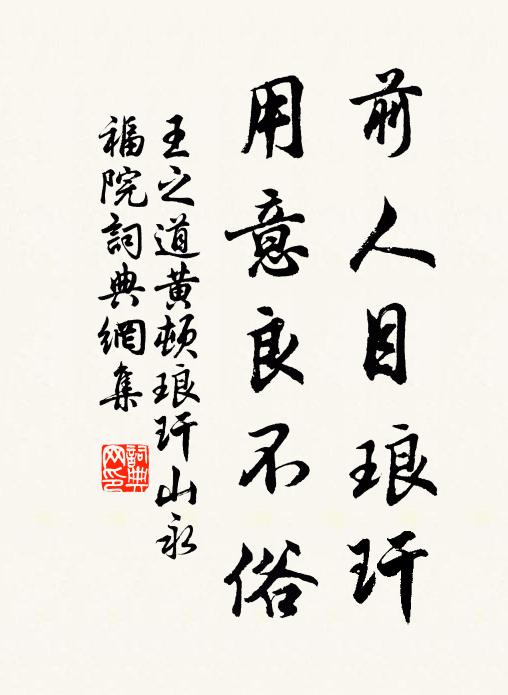 前人目琅玕
用意良不俗
王之道黄頓琅玕山永
福院詞典網集
詞典
网印